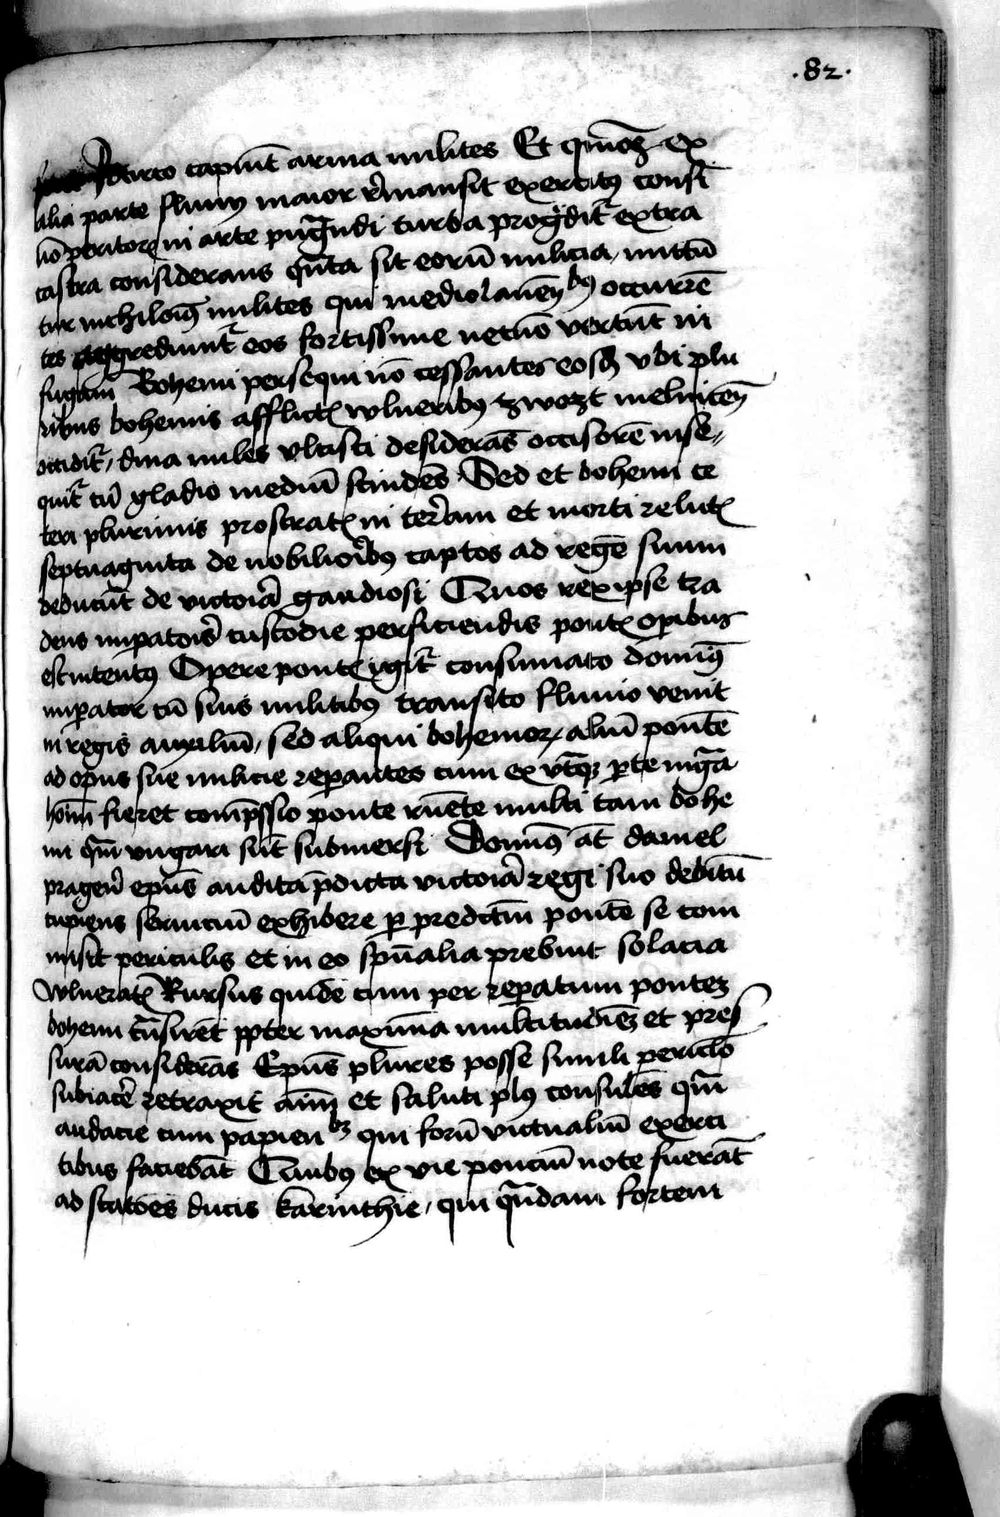 .82.
Idcirco capiunt arma milites Et qm̄ oēz ex
alia parte fluuij maior r̄mansit exercitꝰ consi
lio peritorꝫ in arte pugnādi turba progᵈditr extra
castra considerans qᵃnta sit eorū milicia, mittū
tur nichilomiꝰ milites qui mediolanēnᵇꝰ occurrē
tes aggrediunt̄ eos fortissime necnō vertūt in
fugam Bohemi persequi nō cessantes eosqꝫ vbi plu
ribus bohemis afflictꝭ wlneribꝰ zwozt melnicēn
occidit̄, dina miles vlcisci desiderās occisorē inse-
quit̄ cū gladio mediū scindēs Sed et bohemi ce
teri plurimis prostratꝭ in terram et morti relictꝭ
septuaginta de nobilioribꝰ captos ad regē suum
deducūt de victoria gaudiosi Quos rex ipse tra
dens impatoris custodie perficiendis pontꝭ opibus
est intentꝰ Opere pontꝭ igit̄ consumato domiꝰ
imperator cū suis militibꝰ transito fluuio venit
in regis auxiliū, sed aliqui bohemorꝫ aliū pontē
ad opus sue milicie reparantes cum ex vtqꝫ pte mgᵃ
hoīm fieret compssio ponte ruēte multi tam bohe
mi qᵃm vngari sūt submersi Domiꝰ aūt daniel
prageñ epūs audita p̄dicta victoria regi suo debitū
cupiens seruiciū exhibere per predictūm pontē se com
misit periculis et in eo spūalia prebuit solacia
wlneratꝭ Rursus quidē cum per reparatum pontez
bohemi trāsirēt ppter maximā multitudinēz et pres
surā considerās Epūs plures posse simili periclo
subiacere retraxit aīm et saluti plꝰ consulēs qᵃm
audacie cum papienᵇꝫ qui forū victualiū exerci
tibus faciebāt Quibꝰ ex vie ponciū note fuerāt
ad statōes ducis karinthie, qui qᵃndam fortem